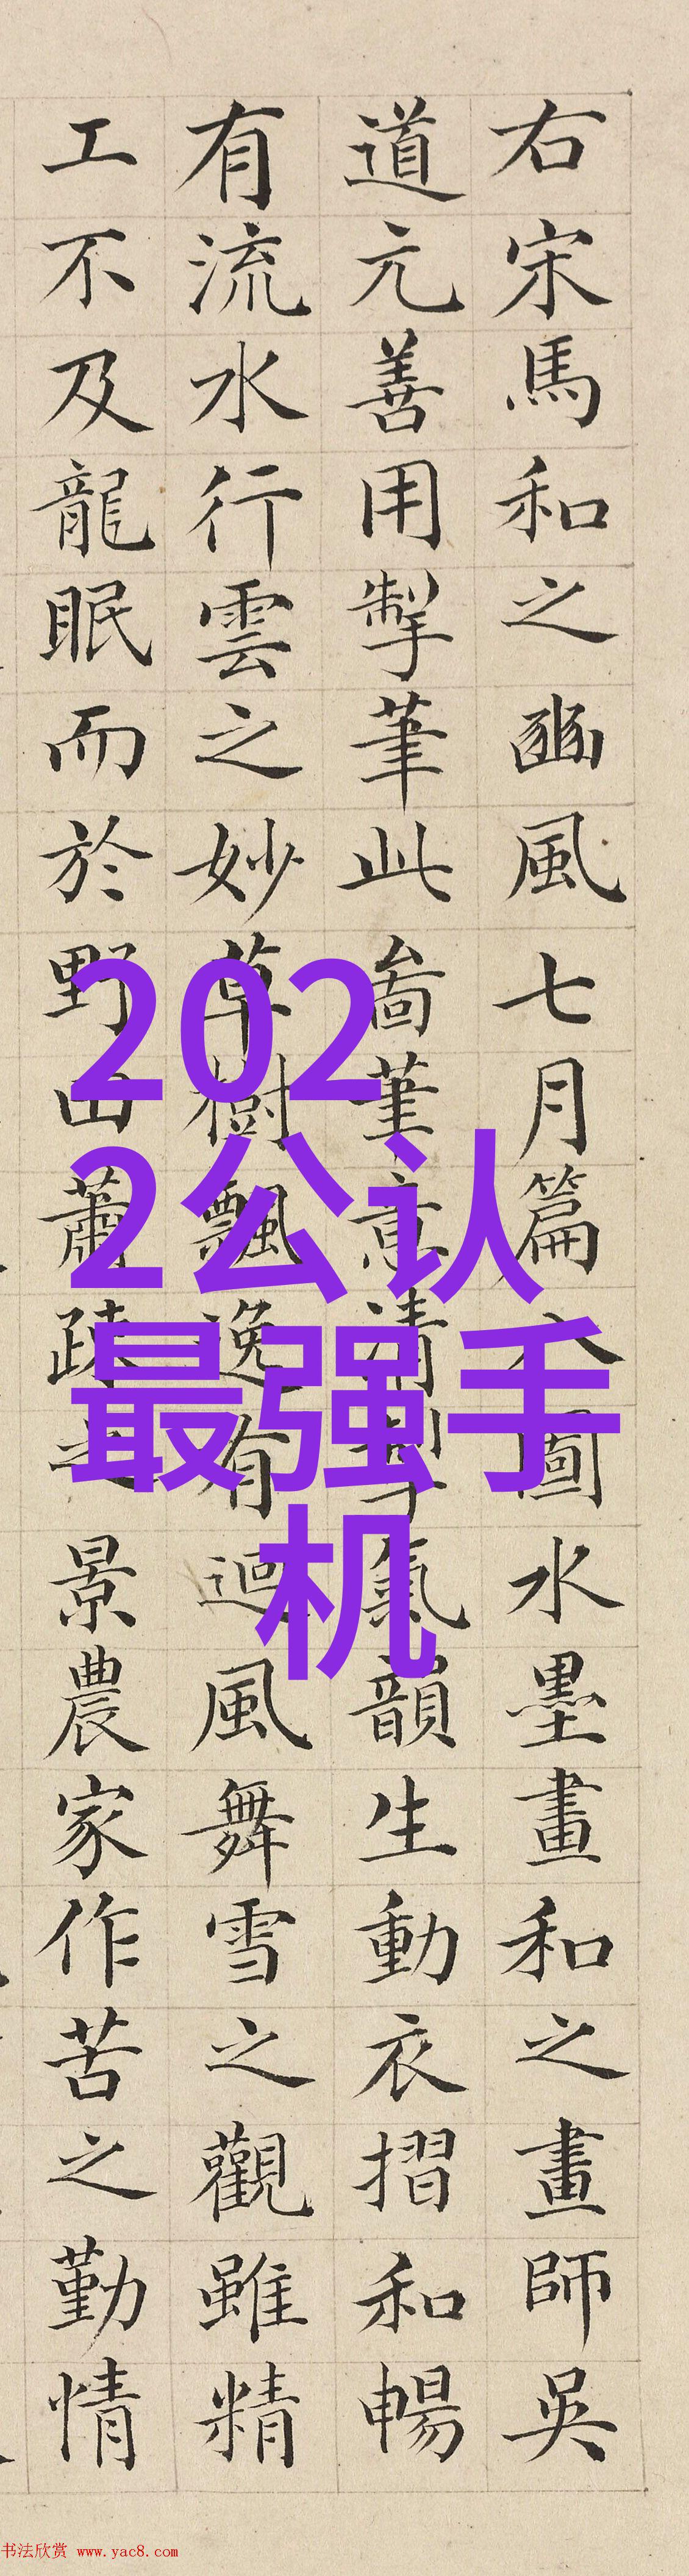 右宋馬和之豳風七月篇八圖水墨畫和之畫師吳
道元善用掣筆此啚筆意清剄氣韻生動衣摺和暢
有流水行雲之妙草樹飄逸有迴風舞雪之觀雖精
工不及龍眠而於野田蕭疎之景農家作苦之勤情
202
2公认
最强手
机
书法欣赏 www.yac8.com